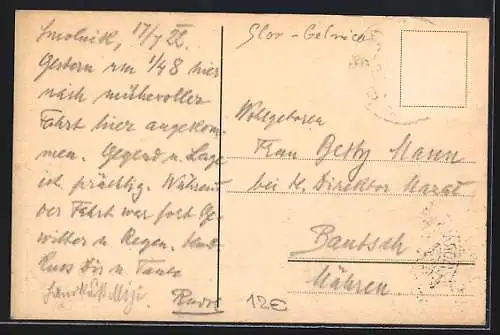 Smolnik, 17/7 22.
Gestern um 1/48 hier
nach mühevoller
Fahrt hier angekom-
men. Gegend u. Lage
ist prächtig. Während
der Fahrt war fast Ge-
witter u Regen.
Kuss Dir u Tante
Handkuß Mizi.
Slov - Gelnica
Wohlgeboren
Frau Betty Mann
bei H. Direktor
Bautsch
Mähren
12€